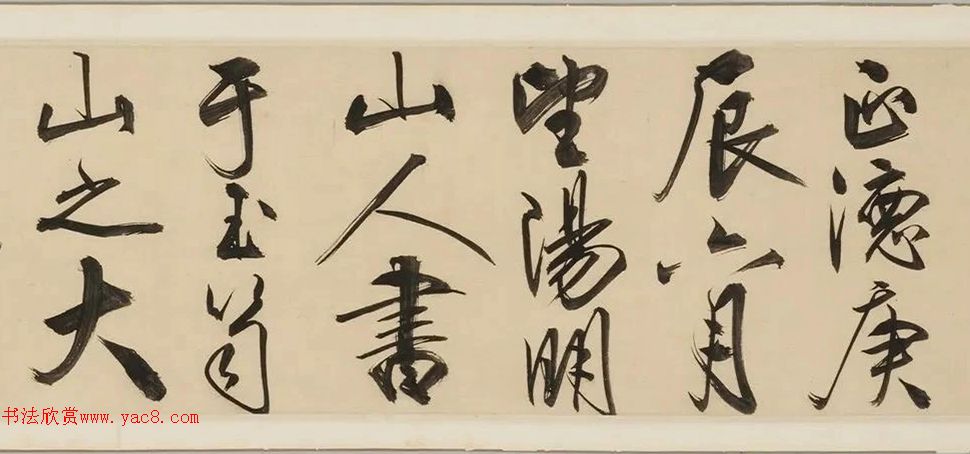 正德庚
辰六月
望陽明
山人書
于玉笥
山之大
书法欣赏www.yac8.com